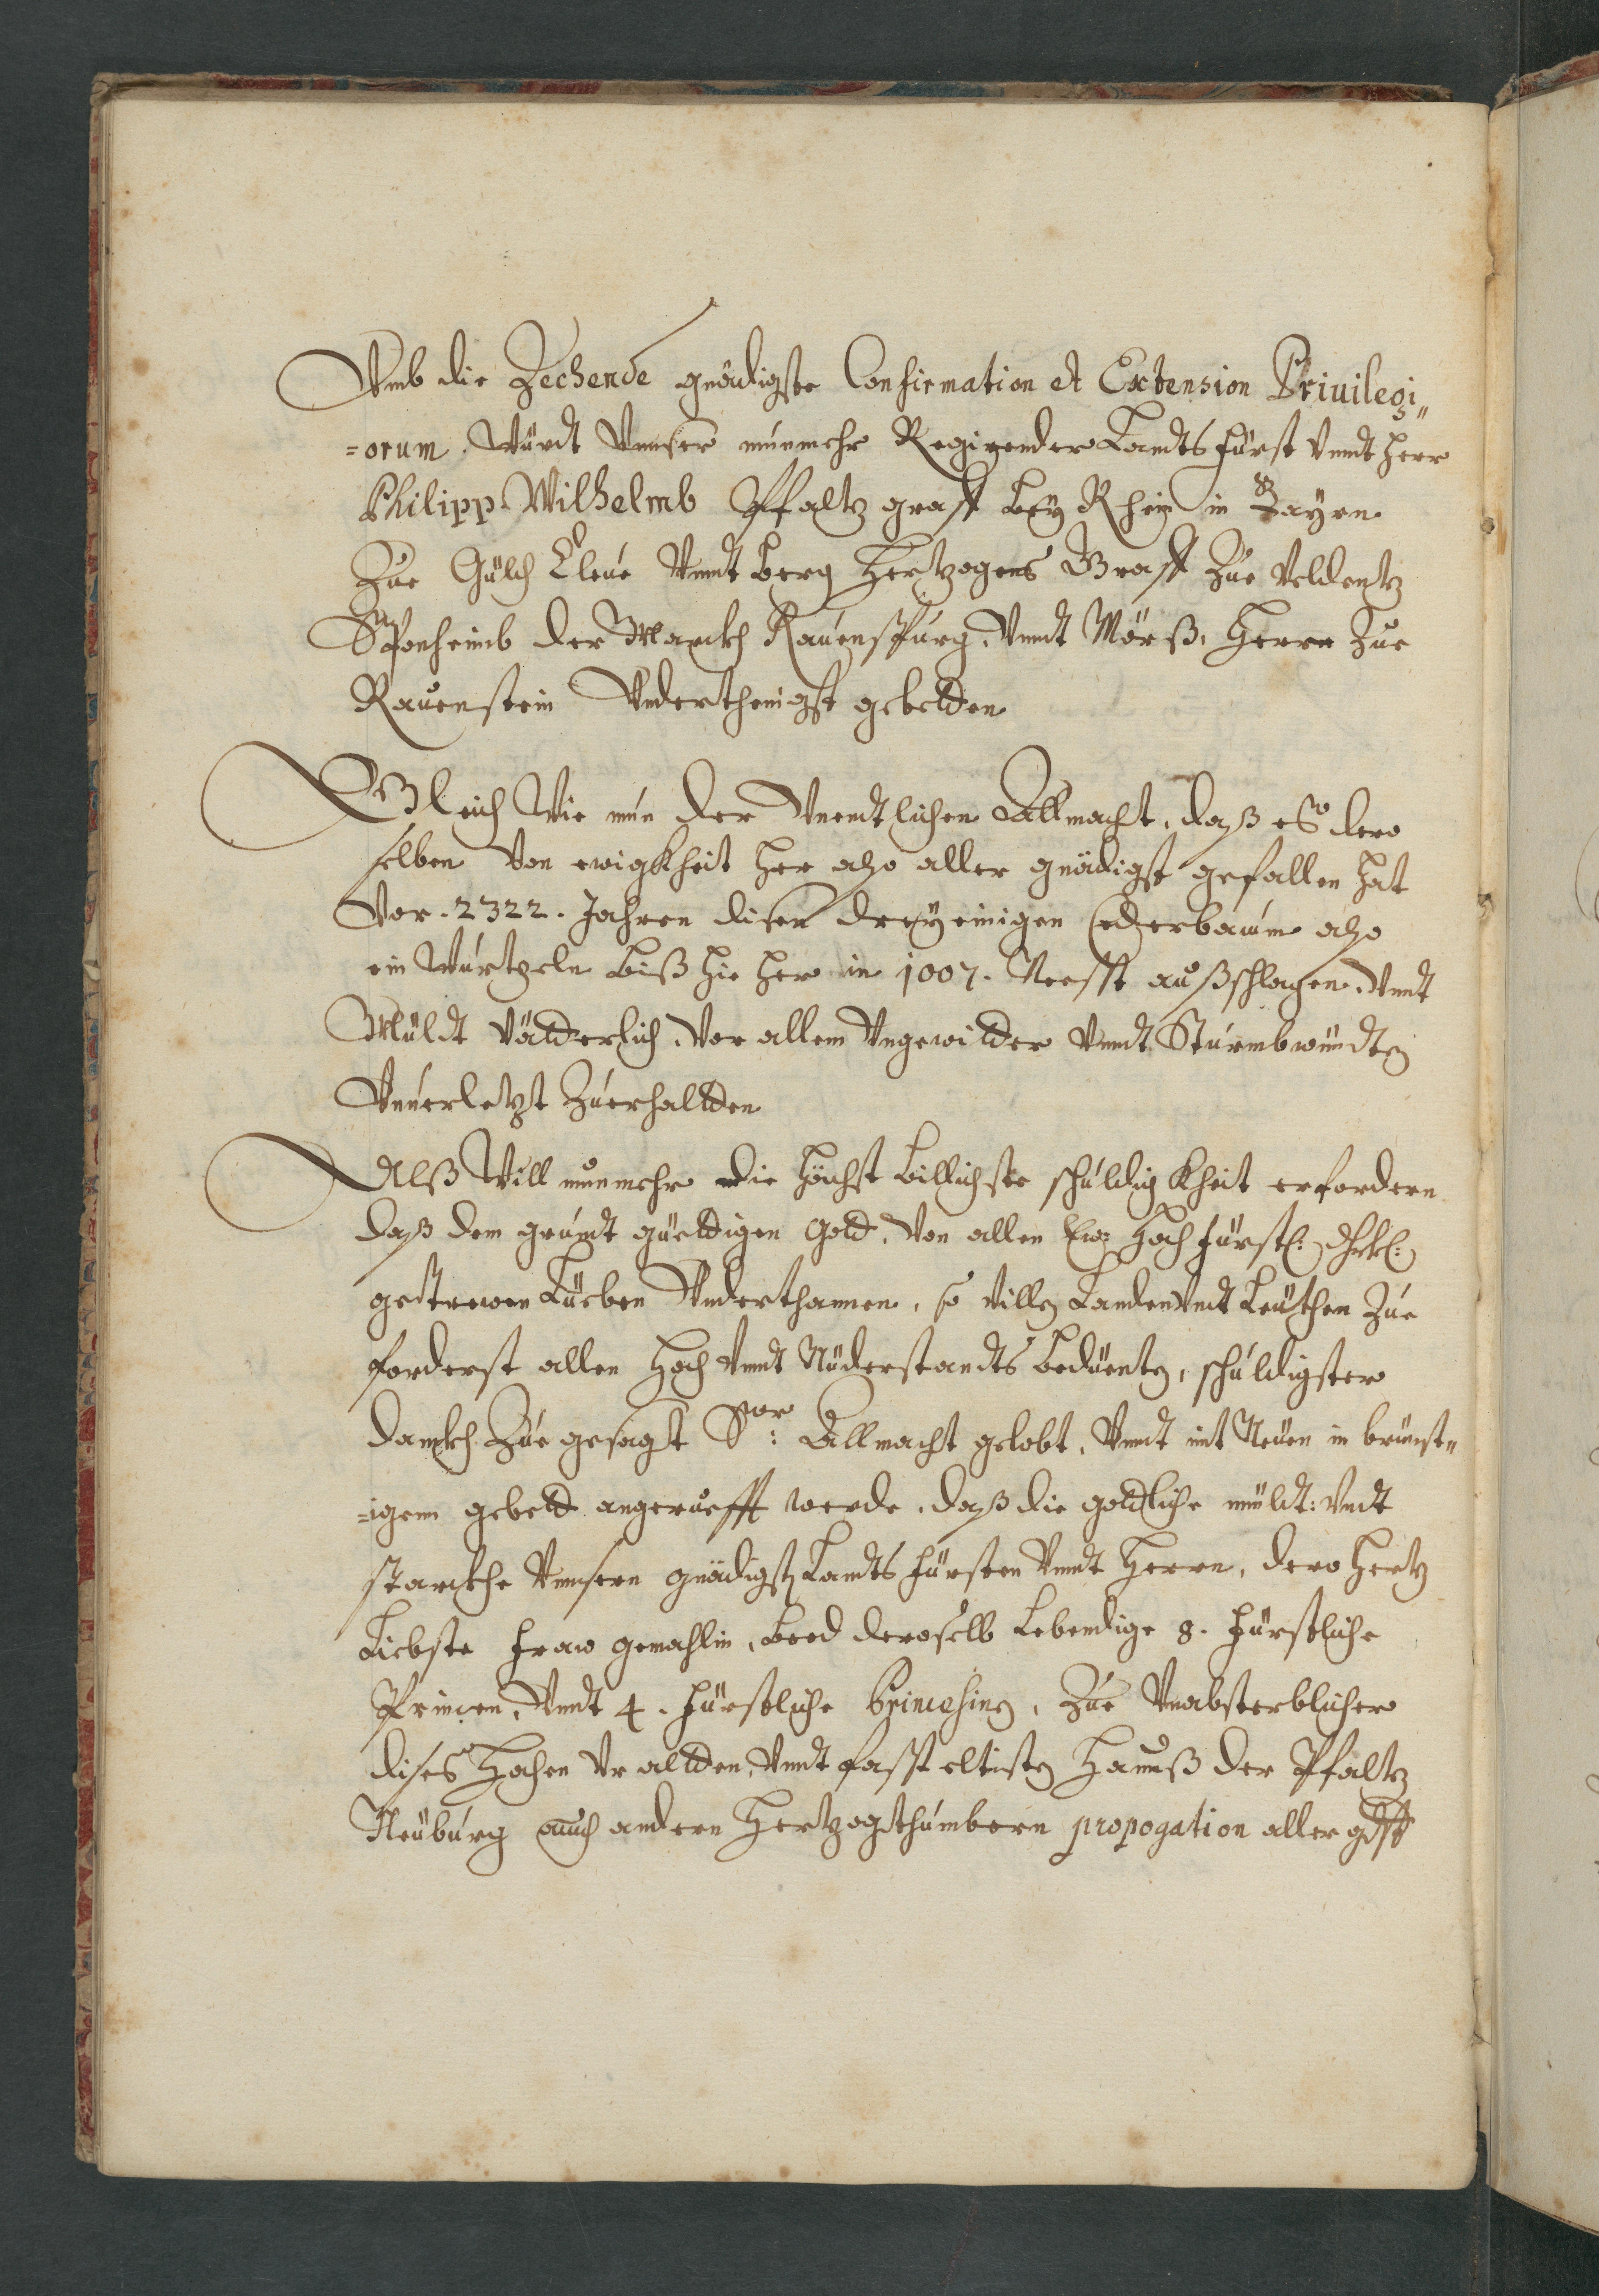 Vmb die Zechende gnädigste Confirmation et Extension Priuilegi„
=orum. Würdt Vnnser núnmehr Regirender Landts Fürst Vnndt Herr
Philipp Wilhelmb Pfaltz graff beÿ Rhein in Bayrn
Zue Gülch Cleúe Vnndt Berg Hertzogens Graff Zúe Veldentz
Sponheimb der Marckh Raúenspúrg, Vnndt Mörß, Herrn Zúe
Rauenstein Vnderthenigst gebetten
Gleich Wie nún der Vnendtlichen Allmacht, daß es dero
selben Von ewigkheit her also aller gnädigst gefallen hat
Vor . 2322 . Jahren disen dreÿ einigen Cederbaúm also
ein Wúrtzeln biß hie her in 1007. Neesst außschlagen. Vnndt
Müldt Vätterlich, Vor allem Vngewitter Vnndt Stúrmbwündten
Vnúerletzt Zúerhallten
Alß Will nunmehr die höchst billichste schúldigkheit erfordern
daß dem grúndt güettigen Gott, Von allen Eur Hochfürstl: Dhrtl:
getrewen Lüeben Vnderthannen, so villen Landen Vndt Leüthen Zúe
forderst allen Hoch Vnndt Niderstandts bediente, schúldigster
danckh Zúe gesagt Sor: Allmacht gelobt, Vnndt mit Neüen in brünst„
=igem gebett angerúefft werde, daß die gottliche müldt: Vndt
starckhe Vnnsern gnädigsten Landts Fürsten Vnndt Herrn, dero Hertz
Liebste Fraw gemahlin, beed deroselb Lebendige 8. Fürstliche
Princen, Vnndt 4. Fürstliche Princesinen, Zúe Vnabsterblicher
dises Hochen Vr allten, Vnndt fasst eltisten Haúß der Pfaltz
Neúbúrg auch andern Hertzogthúmbern propogation aller gdst